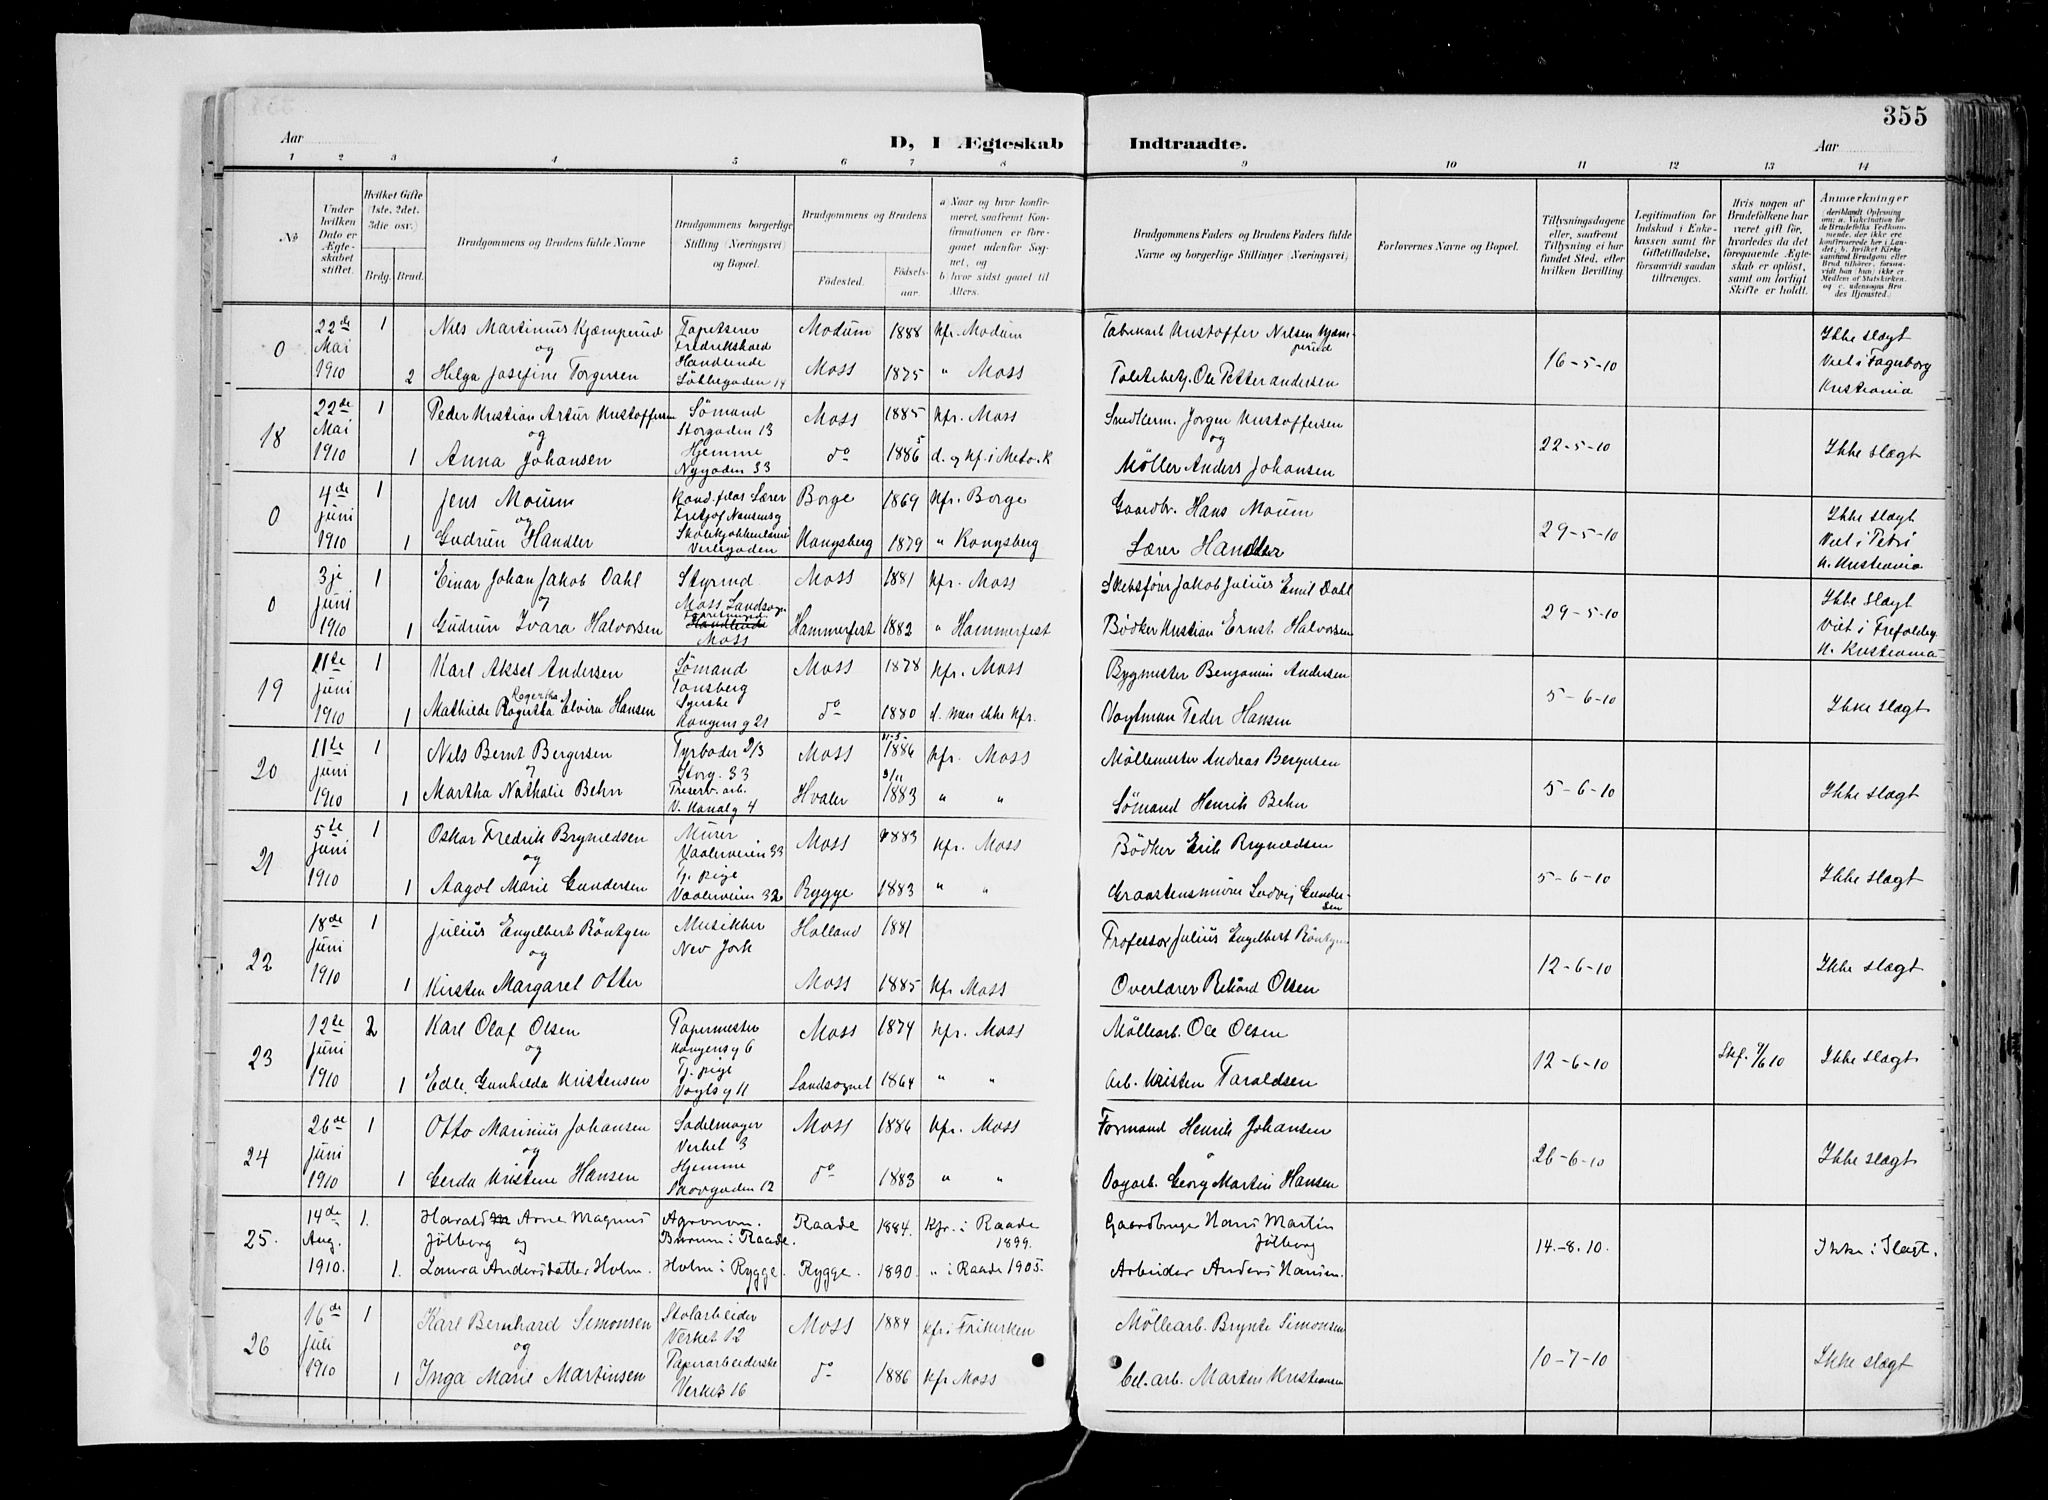 355
Aar
D, I Ægteskab
Indtraadte.
Aar
1 2 3 4 5 6 7 8 9 10 11 12 13 14
No
Under hvilken Dato er Ægteskabet stiftet.
Hvilket Gifte (1ste, 2det, 3die osv.)
Brdg. Brud.
Brudgommens og Brudens fulde Navne
Brudgommens borgerlige Stilling (Næringsvei) og Bopæl.
Brudgommens og Brudens
Fødested. Fødselsaar.
a) Naar og hvor konfirmeret, saafremt Konfirmationen er foregaaet udenfor Sognet, og
b) hvor sidst gaaet til Alters.
Brudgommens Faders og Brudens Faders fulde Navne og borgerlige Stillinger (Næringsvei)
Forlovernes Navne og Bopæl.
Tillysningsdagene eller, saafremt Tillysning ei har fundet Sted, efter hvilken Bevilling
Legitimation for Indskud i Enkekassen samt for Giftetilladelse, forsaavidt saadan tiltrænges.
Hvis nogen af Brudefolkene har været gift før, hvorledes da det foregaaende Ægteskab er opløst, samt om lovligt Skifte er holdt.
Anmærkninger
0 22de Mai 1910 1 Nils Martinius Kjæmperud Tapetserer Fredrikshald Modum 1888 kfr. Modum Kristoffer Nilsen Kjæmperud 16-5-10 Ikke slægt
og
2 Helga Josefine Torgersen Handlende 14 Moss 1875 " Moss Ole Petter Andersen Viet i Fagerborg Kristiania
18 22de Mai 1910 1 Peder Kristian Artur Kristoffersen Sømand Storgaden 13 Moss 1885 kfr. Moss Jørgen Kristoffersen 22-5-10 Ikke slægt
og og
1 Anna Johansen Hjemme Nygaden 33 do 1886 5 d. og kf. i Meto.k Møller Anders Johansen
0 4de Juni 1910 1 Jens Moum Kand. filos Lærer Fritjof Nansensg Borge 1869 kfr. Borge Gaardbr. Hans Moum 29-5-10 Ikke slægt
og
1 Gudrun Handler Verlegaden Kongsberg 1879 " Kongsberg Lærer Handler Viet i Petri k. Kristiania
0 3je Juni 1910 1 Einar Johan Jakob Dahl Styrmd Moss Landsogn Moss 1881 kfr. Moss Skibsfører Jakob Julius Emil Dahl 29-5-10 Ikke slægt
og
1 Gudrun Ivara Halvorsen Handlende Moss Hammerfest 1882 " Hammerfest Bødker Kristian Ernst Halvorsen Viet i k. Kristiania
19 11te Juni 1910 1 Karl Aksel Andersen Sømand Tønsberg Moss 1878 kfr. Moss Bygmester Benjamin Andersen 5-6-10 Ikke slægt
1 Mathilde Elvira Hansen Syerske Kongensg 21 do 1880 d. men ikke kfr. Peder Hansen
20 11te Juni 1910 1 Nils Bernt Bergersen Fyrbøder Storg. 33 Moss 1886 kfr. Moss Møllemester Andreas Bergersen 5-6-10 Ikke slægt
og
1 Martha Nathalie Behn arb. V. Kanalg 4 Hvaler 1883 " " Sømand Henrik Behn
21 5te Juni 1910 1 Oskar Fredrik Brynildsen Murer Vaalerveien 33 Moss 1883 kfr. Moss Bødker Erik Brynildsen 5-6-10 Ikke slægt
og
1 Aagot Marie Gundersen Tj. pige Vaalerveien 32 Rygge 1883 " " Graastensmurer Ludvig Gundersen
22 18de Juni 1910 1 Julius Engelbert Röntgen Musikker New Jork Holland 1881 Professor Julius Engelbert Röntgen 12-6-10 Ikke slægt
og
1 Kirsten Margaret Otter Moss 1885 kfr Moss Overlærer Rikard Olsen
23 12te Juni 1910 2 Karl Olaf Olsen Papermester Kongensg 6 Moss 1874 kfr. Moss Møllearb. Ole Olsen 12-6-10 Skf. 7/6 10 Ikke slægt
og
1 Edle. Gunhilda Kristensen Tj. pige Vogtsg 11 Landsognet 1864 " " Arb. Kristen Taraldsen
24 26de Juni 1910 1 Otto Marinius Johansen Sadelmager Verket 3 Moss 1886 kfr. Moss Formand Henrik Johansen 26-6-10 Ikke slægt
og
1 Gerda Kristine Hansen Hjemme Skovgaden 12 do 1883 " " Dagarb. Georg Martin Hansen
25. 14de Aug. 1910. 1. Harald Arne Magnus Jølberg og Agronom. i Raade. Raade 1884. Kfr. i Raade 1899. Gaardbruger Hans Martin Jølberg 14.-8.10. Ikke i Slægt.
1. Laura Andersdatter Holm. Holm i Rygge. Rygge. 1890. " i Raade 1905. Arbeider Anders Hansen.
26 16de Juli 1910 1 Karl Bernhard Simonsen Stolarbeider Verket 12 Moss 1884 kfr. Frikirken Møllearb. Brynte Simonsen 10-7-10 Ikke slægt
og
1 Inga Marie Martinsen Papirarbeiderske Verket 16 do 1886 kfr Moss Cel. arb. Martin Kristiansen